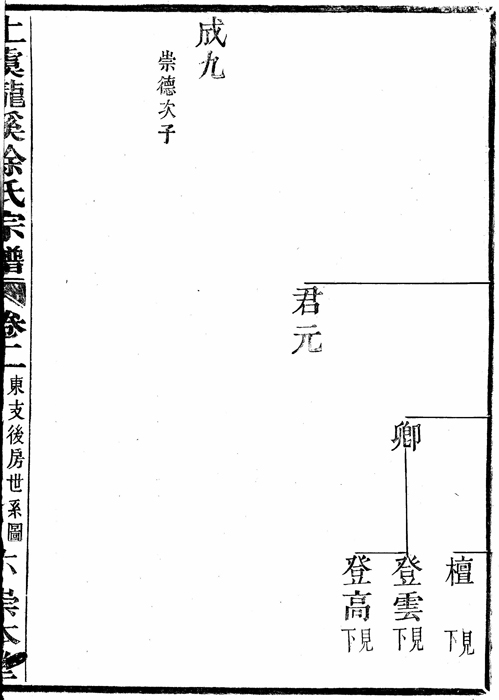 檀
見下
卿
登雲
見下
登高
見下
君元
成九
崇德次子
上虞龍溪徐氏宗譜
卷二
東支後房世系圖
六
崇本堂